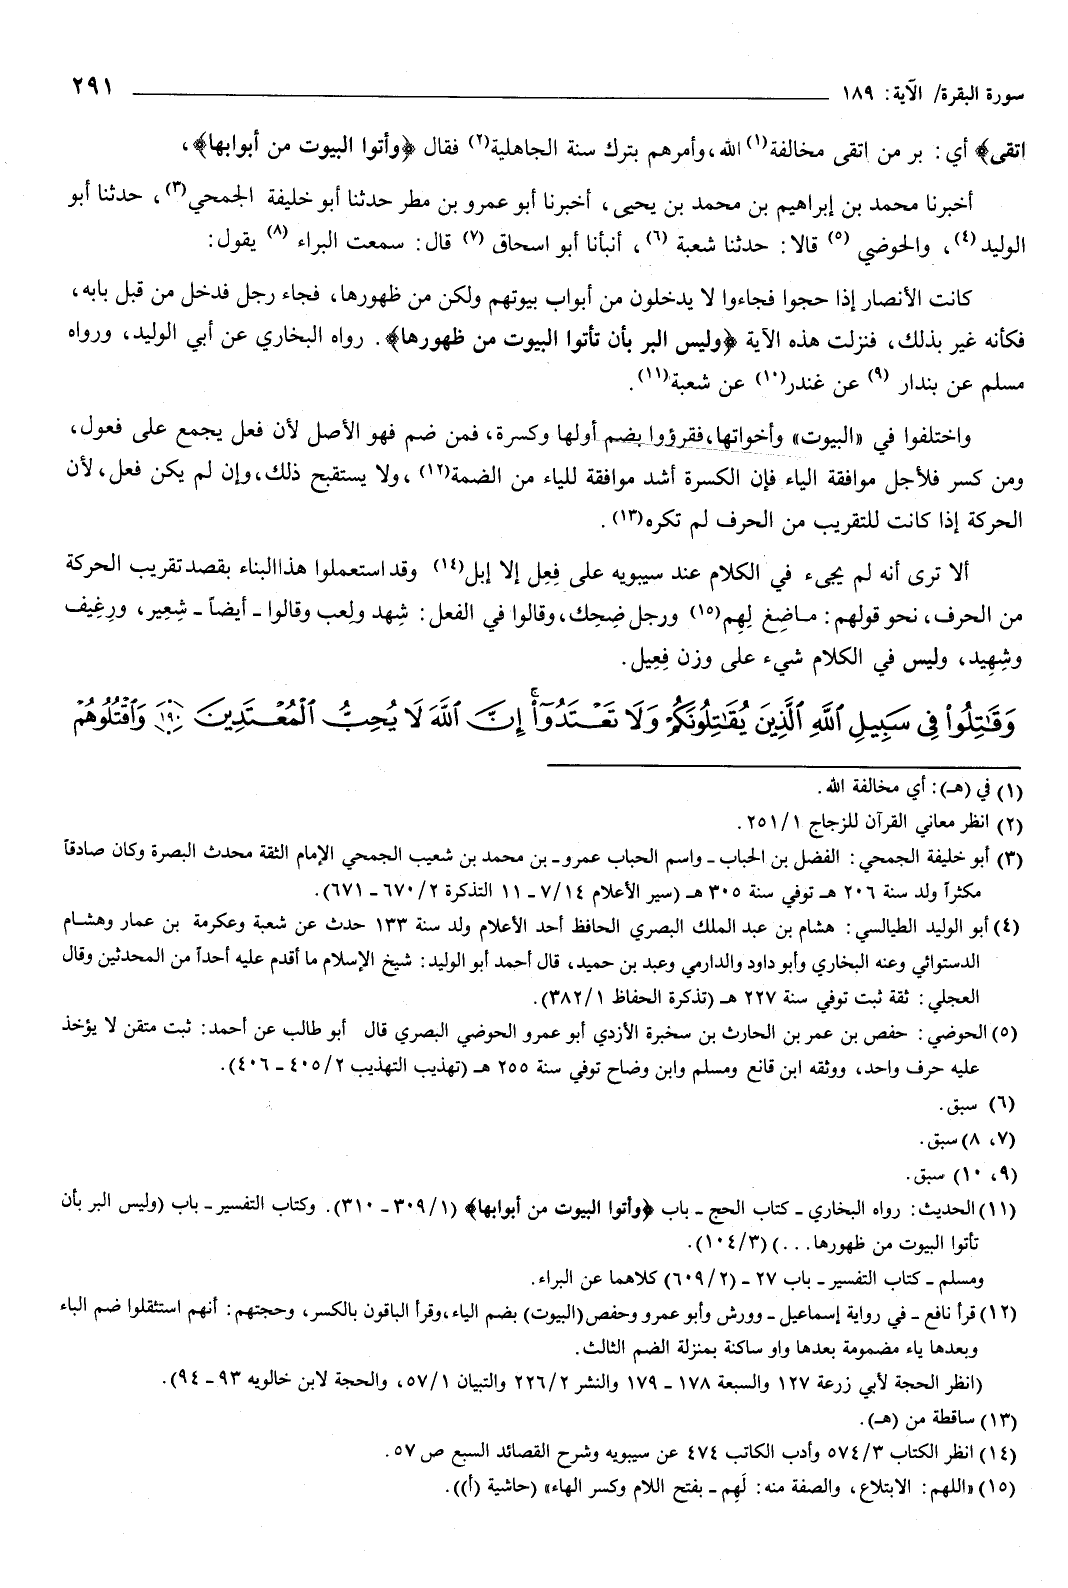 سورة البقرة/ الآية: ١٨٩
٢٩١
اتقى﴾ أي: بر من اتقى مخالفة(١) الله، وأمرهم بترك سنة الجاهلية(٢) فقال ﴿وأتوا البيوت من أبوابها﴾،
أخبرنا محمد بن إبراهيم بن محمد بن يحيى، أخبرنا أبو عمرو بن مطر حدثنا أبو خليفة الجمحي(٣)، حدثنا أبو
الوليد(٤)، والحوضي(٥) قالا: حدثنا شعبة(٦)، أنبأنا أبو اسحاق(٧) قال: سمعت البراء(٨) يقول:
كانت الأنصار إذا حجوا فجاءوا لا يدخلون من أبواب بيوتهم ولكن من ظهورها، فجاء رجل فدخل من قبل بابه،
فكأنه غير بذلك، فنزلت هذه الآية ﴿وليس البر بأن تأتوا البيوت من ظهورها﴾. رواه البخاري عن أبي الوليد، ورواه
مسلم عن بندار(٩) عن غندر(١٠) عن شعبة(١١).
واختلفوا في «البيوت» وأخواتها، فقرؤوا بضم أولها وكسرة، فمن ضم فهو الأصل لأن فعل يجمع على فعول،
ومن كسر فلأجل موافقة الياء فإن الكسرة أشد موافقة للياء من الضمة(١٢)، ولا يستقبح ذلك، وإن لم يكن فعل، لأن
الحركة إذا كانت للتقريب من الحرف لم تكره(١٣).
ألا ترى أنه لم يجىء في الكلام عند سيبويه على فِعِل إلا إبل(١٤) وقد استعملوا هذا البناء بقصد تقريب الحركة
من الحرف، نحو قولهم: ماضِغ لِهِم(١٥) ورجل ضِحِك، وقالوا في الفعل: شِهد ولِعب وقالوا ـ أيضاً ـ شِعِير، ورِغِيف
وشِهِيد، وليس في الكلام شيء على وزن فِعِيل.
وَقَٰتِلُوا۟ فِى سَبِيلِ ٱللَّهِ ٱلَّذِينَ يُقَٰتِلُونَكُمْ وَلَا تَعْتَدُوٓا۟ ۚ إِنَّ ٱللَّهَ لَا يُحِبُّ ٱلْمُعْتَدِينَ ١٩٠ وَٱقْتُلُوهُمْ
(١) في (هـ): أي مخالفة الله.
(٢) انظر معاني القرآن للزجاج ٢٥١/١.
(٣) أبو خليفة الجمحي: الفضل بن الحباب ـ واسم الحباب عمرو ـ بن محمد بن شعيب الجمحي الإمام الثقة محدث البصرة وكان صادقاً
مكثراً ولد سنة ٢٠٦ هـ توفي سنة ٣٠٥ هـ (سير الأعلام ٧/١٤ ـ ١١ التذكرة ٦٧٠/٢ ـ ٦٧١).
(٤) أبو الوليد الطيالسي: هشام بن عبد الملك البصري الحافظ أحد الأعلام ولد سنة ١٣٣ حدث عن شعبة وعكرمة بن عمار وهشام
الدستوائي وعنه البخاري وأبو داود والدارمي وعبد بن حميد، قال أحمد أبو الوليد: شيخ الإسلام ما أقدم عليه أحداً من المحدثين وقال
العجلي: ثقة ثبت توفي سنة ٢٢٧ هـ (تذكرة الحفاظ ٣٨٢/١).
(٥) الحوضي: حفص بن عمر بن الحارث بن سخبرة الأزدي أبو عمرو الحوضي البصري قال أبو طالب عن أحمد: ثبت متقن لا يؤخذ
عليه حرف واحد، ووثقه ابن قانع ومسلم وابن وضاح توفي سنة ٢٥٥ هـ (تهذيب التهذيب ٤٠٥/٢ ـ ٤٠٦).
(٦) سبق.
(٧، ٨) سبق.
(٩، ١٠) سبق.
(١١) الحديث: رواه البخاري ـ كتاب الحج ـ باب ﴿وأتوا البيوت من أبوابها﴾ (٣٠٩/١ ـ ٣١٠). وكتاب التفسير ـ باب (وليس البر بأن
تأتوا البيوت من ظهورها...) (١٠٤/٣).
ومسلم ـ كتاب التفسير ـ باب ٢٧ ـ (٦٠٩/٢) كلاهما عن البراء.
(١٢) قرأ نافع ـ في رواية إسماعيل ـ وورش وأبو عمرو وحفص (البيوت) بضم الياء، وقرأ الباقون بالكسر، وحجتهم: أنهم استثقلوا ضم الباء
وبعدها ياء مضمومة بعدها واو ساكنة بمنزلة الضم الثالث.
(انظر الحجة لأبي زرعة ١٢٧ والسبعة ١٧٨ ـ ١٧٩ والنشر ٢٢٦/٢ والتبيان ٥٧/١، والحجة لابن خالويه ٩٣ ـ ٩٤).
(١٣) ساقطة من (هـ).
(١٤) انظر الكتاب ٥٧٤/٣ وأدب الكاتب ٤٧٤ عن سيبويه وشرح القصائد السبع ص ٥٧.
(١٥) «اللهم: الابتلاع، والصفة منه: لَهِم ـ بفتح اللام وكسر الهاء» (حاشية (أ)).